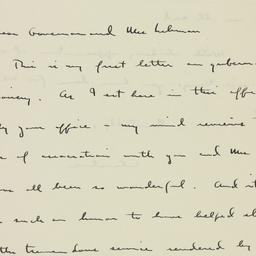 Governor and Mrs Lehman
This is my first letter on
As I sit here in this
your office - my mind remains
of association with you and Mrs
all been so wonderful. And it
such an honor to have helped
the tremendous service rendered by